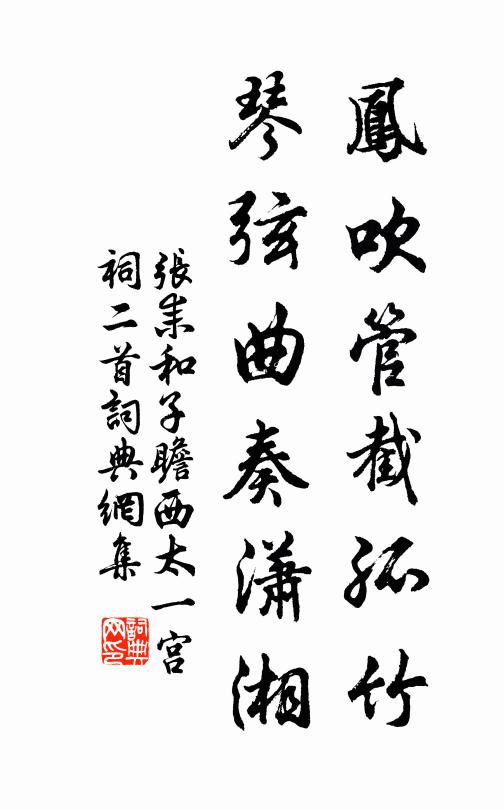 鳳吹管截孤竹
琴弦曲奏瀟湘
張耒和子瞻西太一宮
祠二首詞典網集
詞典
网印